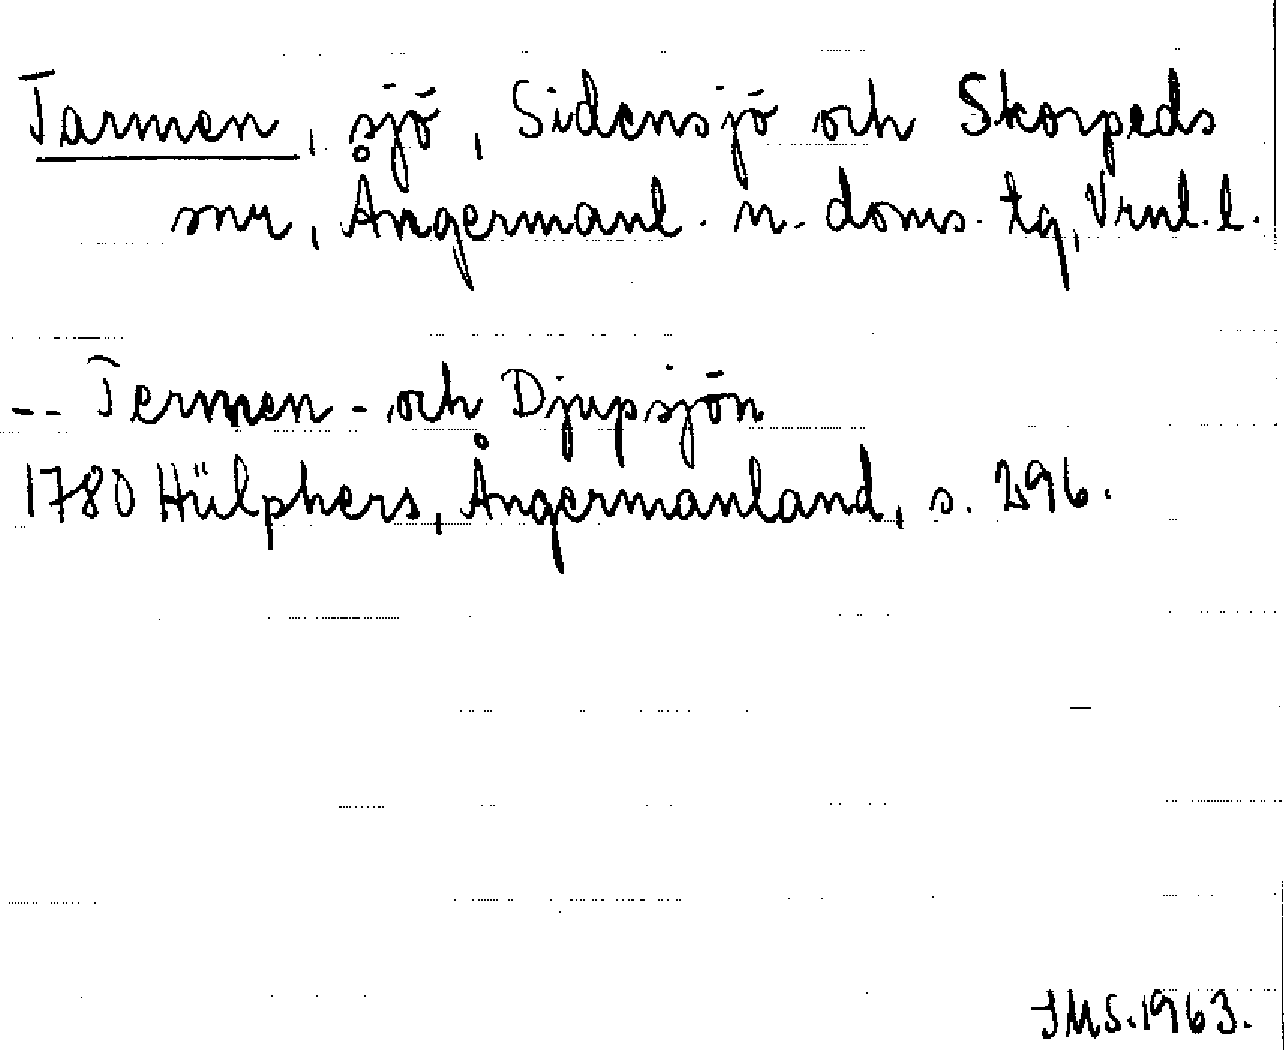 Tarmen, sjö, Sidensjö och Skorpeds
snr, Ångermanl. n. doms. tg, Vrnl. l.
-- Termen - och Djupsjön
1780 Hülphers, Ångermanland, s. 296.
JMS. 1963.